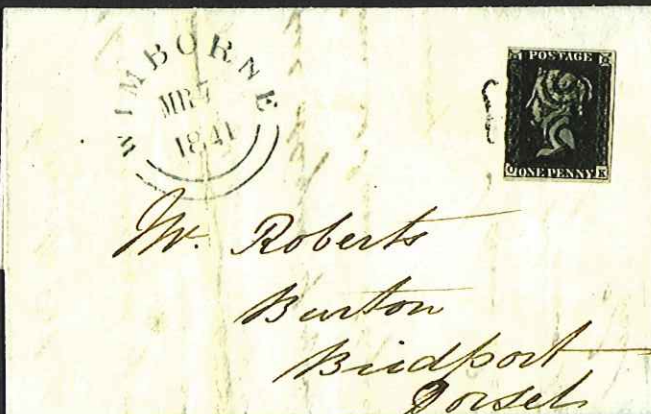 WIMBORNE
MR 7
1841
POSTAGE
ONE PENNY
Mr. Roberts
Burton
Bridport
Dorset